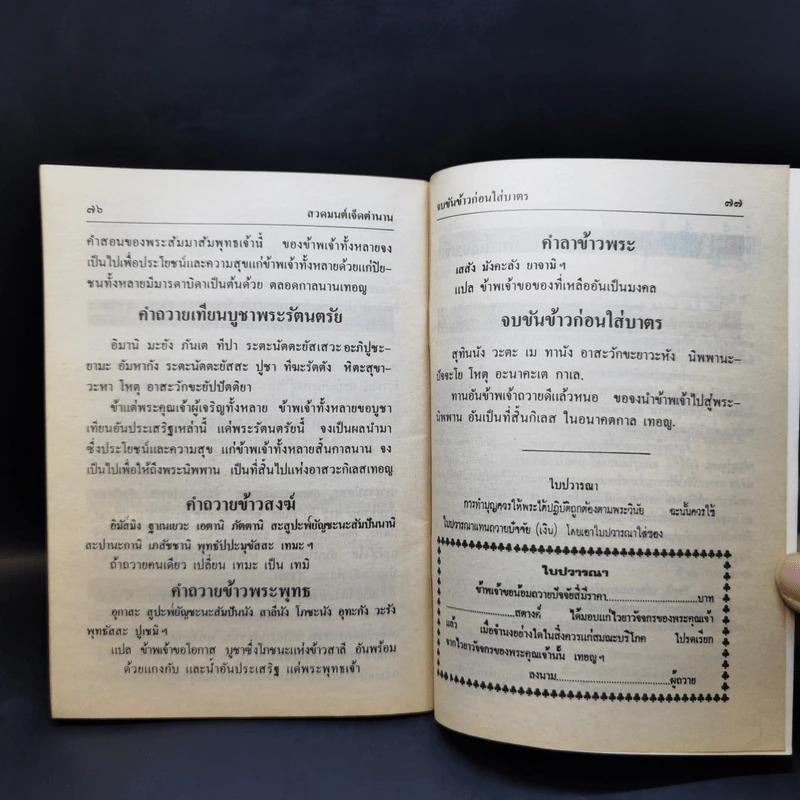 ๗๖ สวดมนต์เจ็ดตำนาน
คำสอนของพระสัมมาสัมพุทธเจ้านี้ ของข้าพเจ้าทั้งหลายจง
เป็นไปเพื่อประโยชน์และความสุขแก่ข้าพเจ้าทั้งหลายด้วยแก่ปิย-
ชนทั้งหลายมีมารดาบิดาเป็นต้นด้วย ตลอดกาลนานเทอญ
คำถวายเทียนบูชาพระรัตนตรัย
อิมานิ มะยัง ภันเต ทีปา ระตะนัตตะยัสเสวะ อะภิปูชะ-
ยามะ อัมหากัง ระตะนัตตะยัสสะ ปูชา ทีฆะรัตตัง หิตะสุขา-
วะหา โหตุ อาสะวักขะยัปปัตติยา
ข้าแต่พระคุณเจ้าผู้เจริญทั้งหลาย ข้าพเจ้าทั้งหลายขอบูชา
เทียนอันประเสริฐเหล่านี้ แด่พระรัตนตรัยนี้ จงเป็นผลนำมา
ซึ่งประโยชน์และความสุข แก่ข้าพเจ้าทั้งหลายสิ้นกาลนาน จง
เป็นไปเพื่อให้ถึงพระนิพพาน เป็นที่สิ้นไปแห่งอาสวะกิเลสเทอญ
คำถวายข้าวสงฆ์
อิมัสมิง ฐาเนเยวะ เอตานิ ภัตตานิ สะสูปะพ์ยัญชะนะสัมปันนานิ
สะปานะกานิ เภสัชชานิ พุทธัปปะมุขัสสะ เทมะ ฯ
ถ้าถวายคนเดียว เปลี่ยน เทมะ เป็น เทมิ
คำถวายข้าวพระพุทธ
อุกาสะ สูปะพ์ยัญชะนะสัมปันนัง สาลีนัง โภชะนัง อุทะกัง วะรัง
พุทธัสสะ ปูเชมิ ฯ
แปล ข้าพเจ้าขอโอกาส บูชาซึ่งโภชนะแห่งข้าวสาลี อันพร้อม
ด้วยแกงกับ และน้ำอันประเสริฐ แด่พระพุทธเจ้า
จบขันข้าวก่อนใส่บาตร ๗๗
คำลาข้าวพระ
เสสัง มังคะลัง ยาจามิ ฯ
แปล ข้าพเจ้าขอของที่เหลืออันเป็นมงคล
จบขันข้าวก่อนใส่บาตร
สุทินนัง วะตะ เม ทานัง อาสะวักขะยาวะหัง นิพพานะ-
ปัจจะโย โหตุ อะนาคะเต กาเล.
ทานอันข้าพเจ้าถวายดีแล้วหนอ ขอจงนำข้าพเจ้าไปสู่พระ-
นิพพาน อันเป็นที่สิ้นกิเลส ในอนาคตกาล เทอญ.
ใบปวารณา
การทำบุญควรให้พระได้ปฏิบัติถูกต้องตามพระวินัย ฉะนั้นควรใช้
ใบปวารณาแทนถวายปัจจัย (เงิน) โดยเอาใบปวารณาใส่ซอง
ใบปวารณา
ข้าพเจ้าขอน้อมถวายปัจจัยสี่มีราคา....................บาท
....................สตางค์ ได้มอบแก่ไวยาวัจจกรของพระคุณเจ้า
แล้ว เมื่อจำนงอย่างใดในสิ่งควรแก่สมณะบริโภค โปรดเรียก
จากไวยาวัจจกรของพระคุณเจ้านั้น เทอญ ฯ
ลงนาม..............................ผู้ถวาย